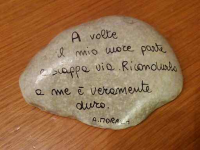 A volte
il mio cuore parte
e scappa via Ricondurlo
a me è veramente
duro.